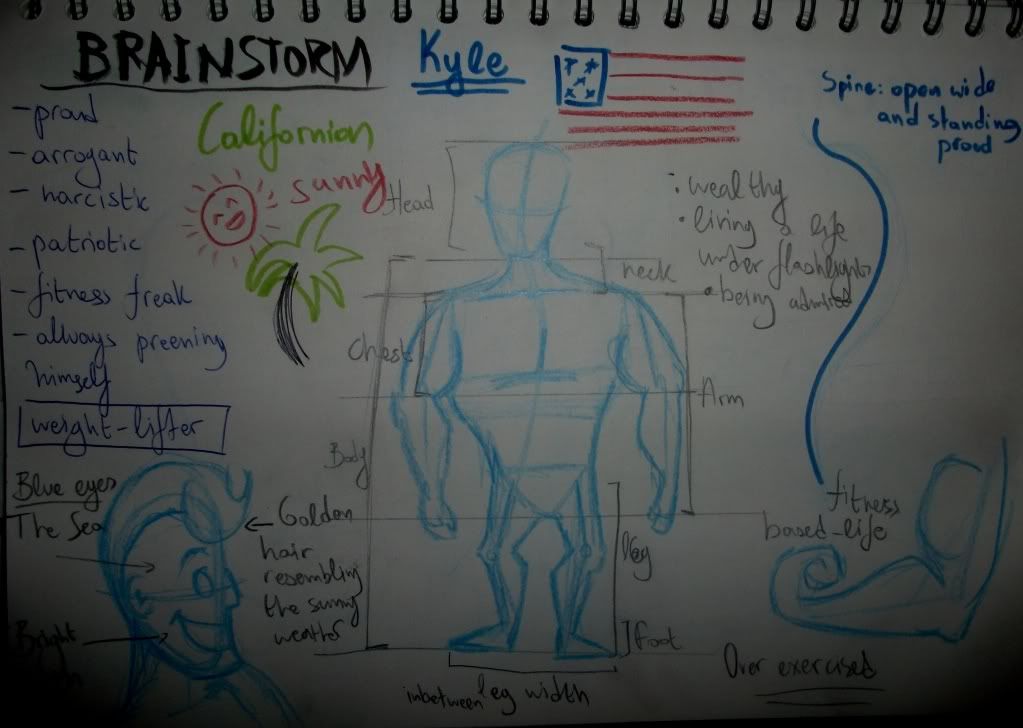 BRAINSTORM
Kyle
- proud
- arrogant
- narcistic
- patriotic
- fitness freak
- allways preening
himself
weight-lifter
Californian
sunny
Spine: open wide
and standing
proud
• wealthy
• living a life
under flashlights
• being admired
Head
neck
Chest
Arm
Body
leg
foot
inbetween leg width
Blue eyes
The Sea
Golden
hair
resembling
the sunny
weather
Bright
fitness
based-life
Over exercised